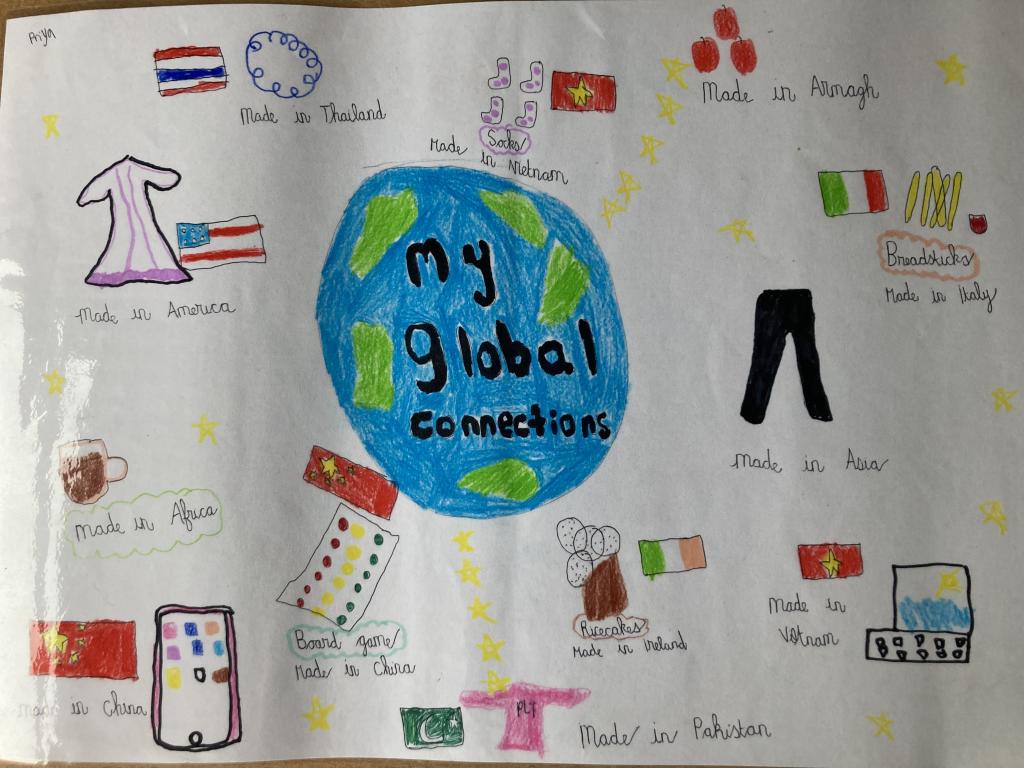 Priya
Made in Thailand
Made Socks
in Vietnam
Made in Armagh
Made in America
Breadsticks
Made in Italy
my
global
connections
Made in Asia
Made in Africa
Board game
Made in China
Ricecakes
Made in Ireland
Made in
Vietnam
Made in China
PLT
Made in Pakistan